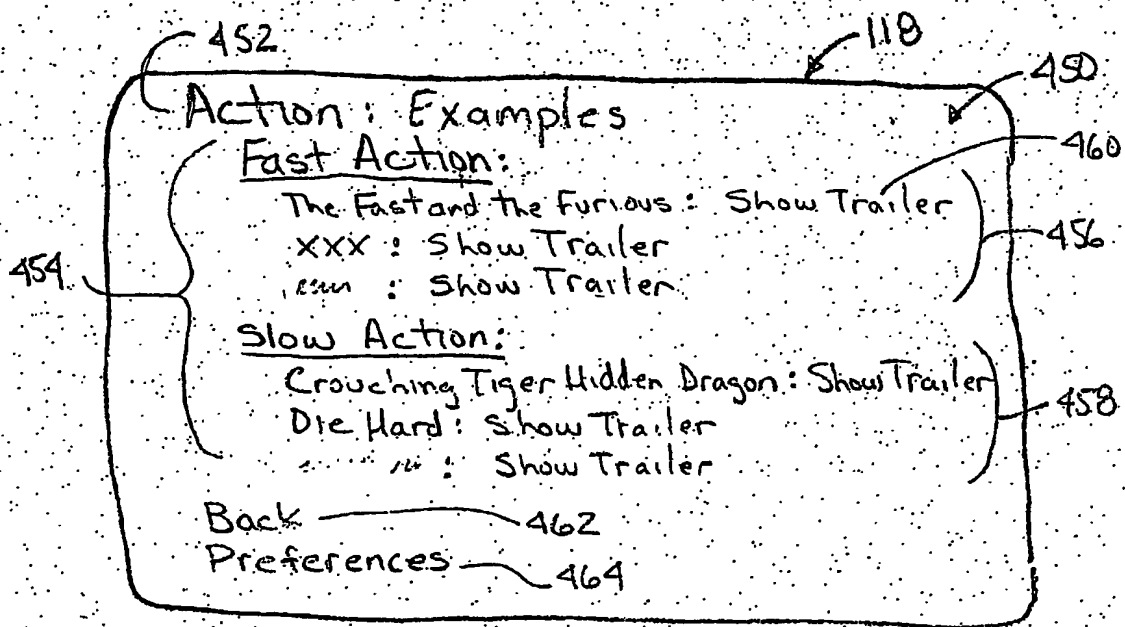 452
118
450
Action: Examples
460
Fast Action:
The Fast and the Furious: Show Trailer
XXX: Show Trailer
456
454
: Show Trailer
Slow Action:
Crouching Tiger Hidden Dragon: Show Trailer
458
Die Hard: Show Trailer
: Show Trailer
Back 462
Preferences 464